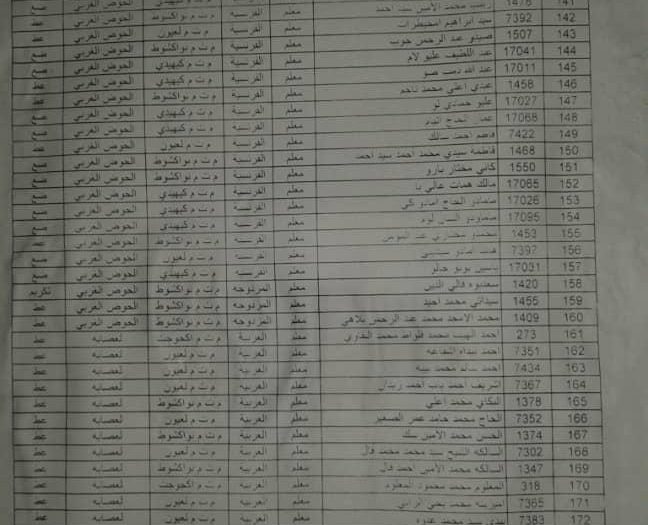 141 1476 زينب محمد الأمين سيد احمد معلم الفرنسية م ت م كيهيدي الحوض الغربي ضغ
142 7392 سيد ابراهيم امخيطرات معلم الفرنسية م ت م نواكشوط الحوض الغربي عط
143 1507 صيدو عبد الرحمن حوب معلم الفرنسية م ت م لعيون الحوض الغربي عط
144 17041 عبد اللطيف عليو لام معلم الفرنسية م ت م نواكشوط الحوض الغربي ضغ
145 17011 عبد الله صو معلم الفرنسية م ت م كيهيدي الحوض الغربي ضغ
146 1458 عبدي اعلي محمد ناجم معلم الفرنسية م ت م كيهيدي الحوض الغربي عط
147 17027 عليو حمادي لو معلم الفرنسية م ت م نواكشوط الحوض الغربي ضغ
148 17068 عمار الحاج انيام معلم الفرنسية م ت م كيهيدي الحوض الغربي ضغ
149 7422 فاطم احمد سالك معلم الفرنسية م ت م كيهيدي الحوض الغربي ضغ
150 1468 فاطمة سيدي محمد احمد سيد احمد معلم الفرنسية م ت م لعيون الحوض الغربي عط
151 1550 مختار بارو معلم الفرنسية م ت م نواكشوط الحوض الغربي ضغ
152 17065 مالك همات عالي با معلم الفرنسية م ت م كيهيدي الحوض الغربي ضغ
153 17026 ممادو الحاج امادو كي معلم الفرنسية م ت م كيهيدي الحوض الغربي ضغ
154 17095 لوم معلم الفرنسية م ت م كيهيدي الحوض الغربي ضغ
155 1453 معلم الفرنسية م ت م نواكشوط الحوض الغربي عط
156 7397 معلم الفرنسية م ت م لعيون الحوض الغربي ضغ
157 17031 ياسين بوبو جالو معلم الفرنسية م ت م كيهيدي الحوض الغربي ضغ
158 1420 سعدبوه فالي النين معلم المزدوجه م ت م نواكشوط الحوض الغربي تكريم
159 1455 سيداتي محمد احيد معلم المزدوجه م ت م نواكشوط الحوض الغربي عط
160 1409 محمد الامجد محمد عبد الرحمن بلاهي معلم المزدوجه م ت م نواكشوط الحوض الغربي عط
161 273 احمد محمد محمد معلم العربية م ت م اكجوجت لعصابه عط
162 7351 احمد معلم العربية م ت م لعيون لعصابه عط
163 7434 احمد سالم محمد معلم العربية م ت م لعيون لعصابه عط
164 7367 الشريف احمد باب احمد زيدان معلم العربية م ت م لعيون لعصابه عط
165 1378 البكاي محمد اعلي معلم العربية م ت م نواكشوط لعصابه عط
166 7352 الحاج محمد حامد عمر الصغير معلم العربية م ت م لعيون لعصابه عط
167 1374 الحسن محمد الأمين سك معلم العربية م ت م نواكشوط لعصابه عط
168 7302 السالكه الشيخ سيد محمد محمد فال معلم العربية م ت م لعيون لعصابه عط
169 1347 السالكه محمد الأمين احمد فال معلم العربية م ت م نواكشوط لعصابه عط
170 318 المعلوم محمد محمود المعلوم معلم العربية م ت م اكجوجت لعصابه عط
171 7365 محمد يحيى معلم العربية م ت م لعيون لعصابه عط
172 7383 سيد محمد معلم العربية م ت م لعيون لعصابه عط